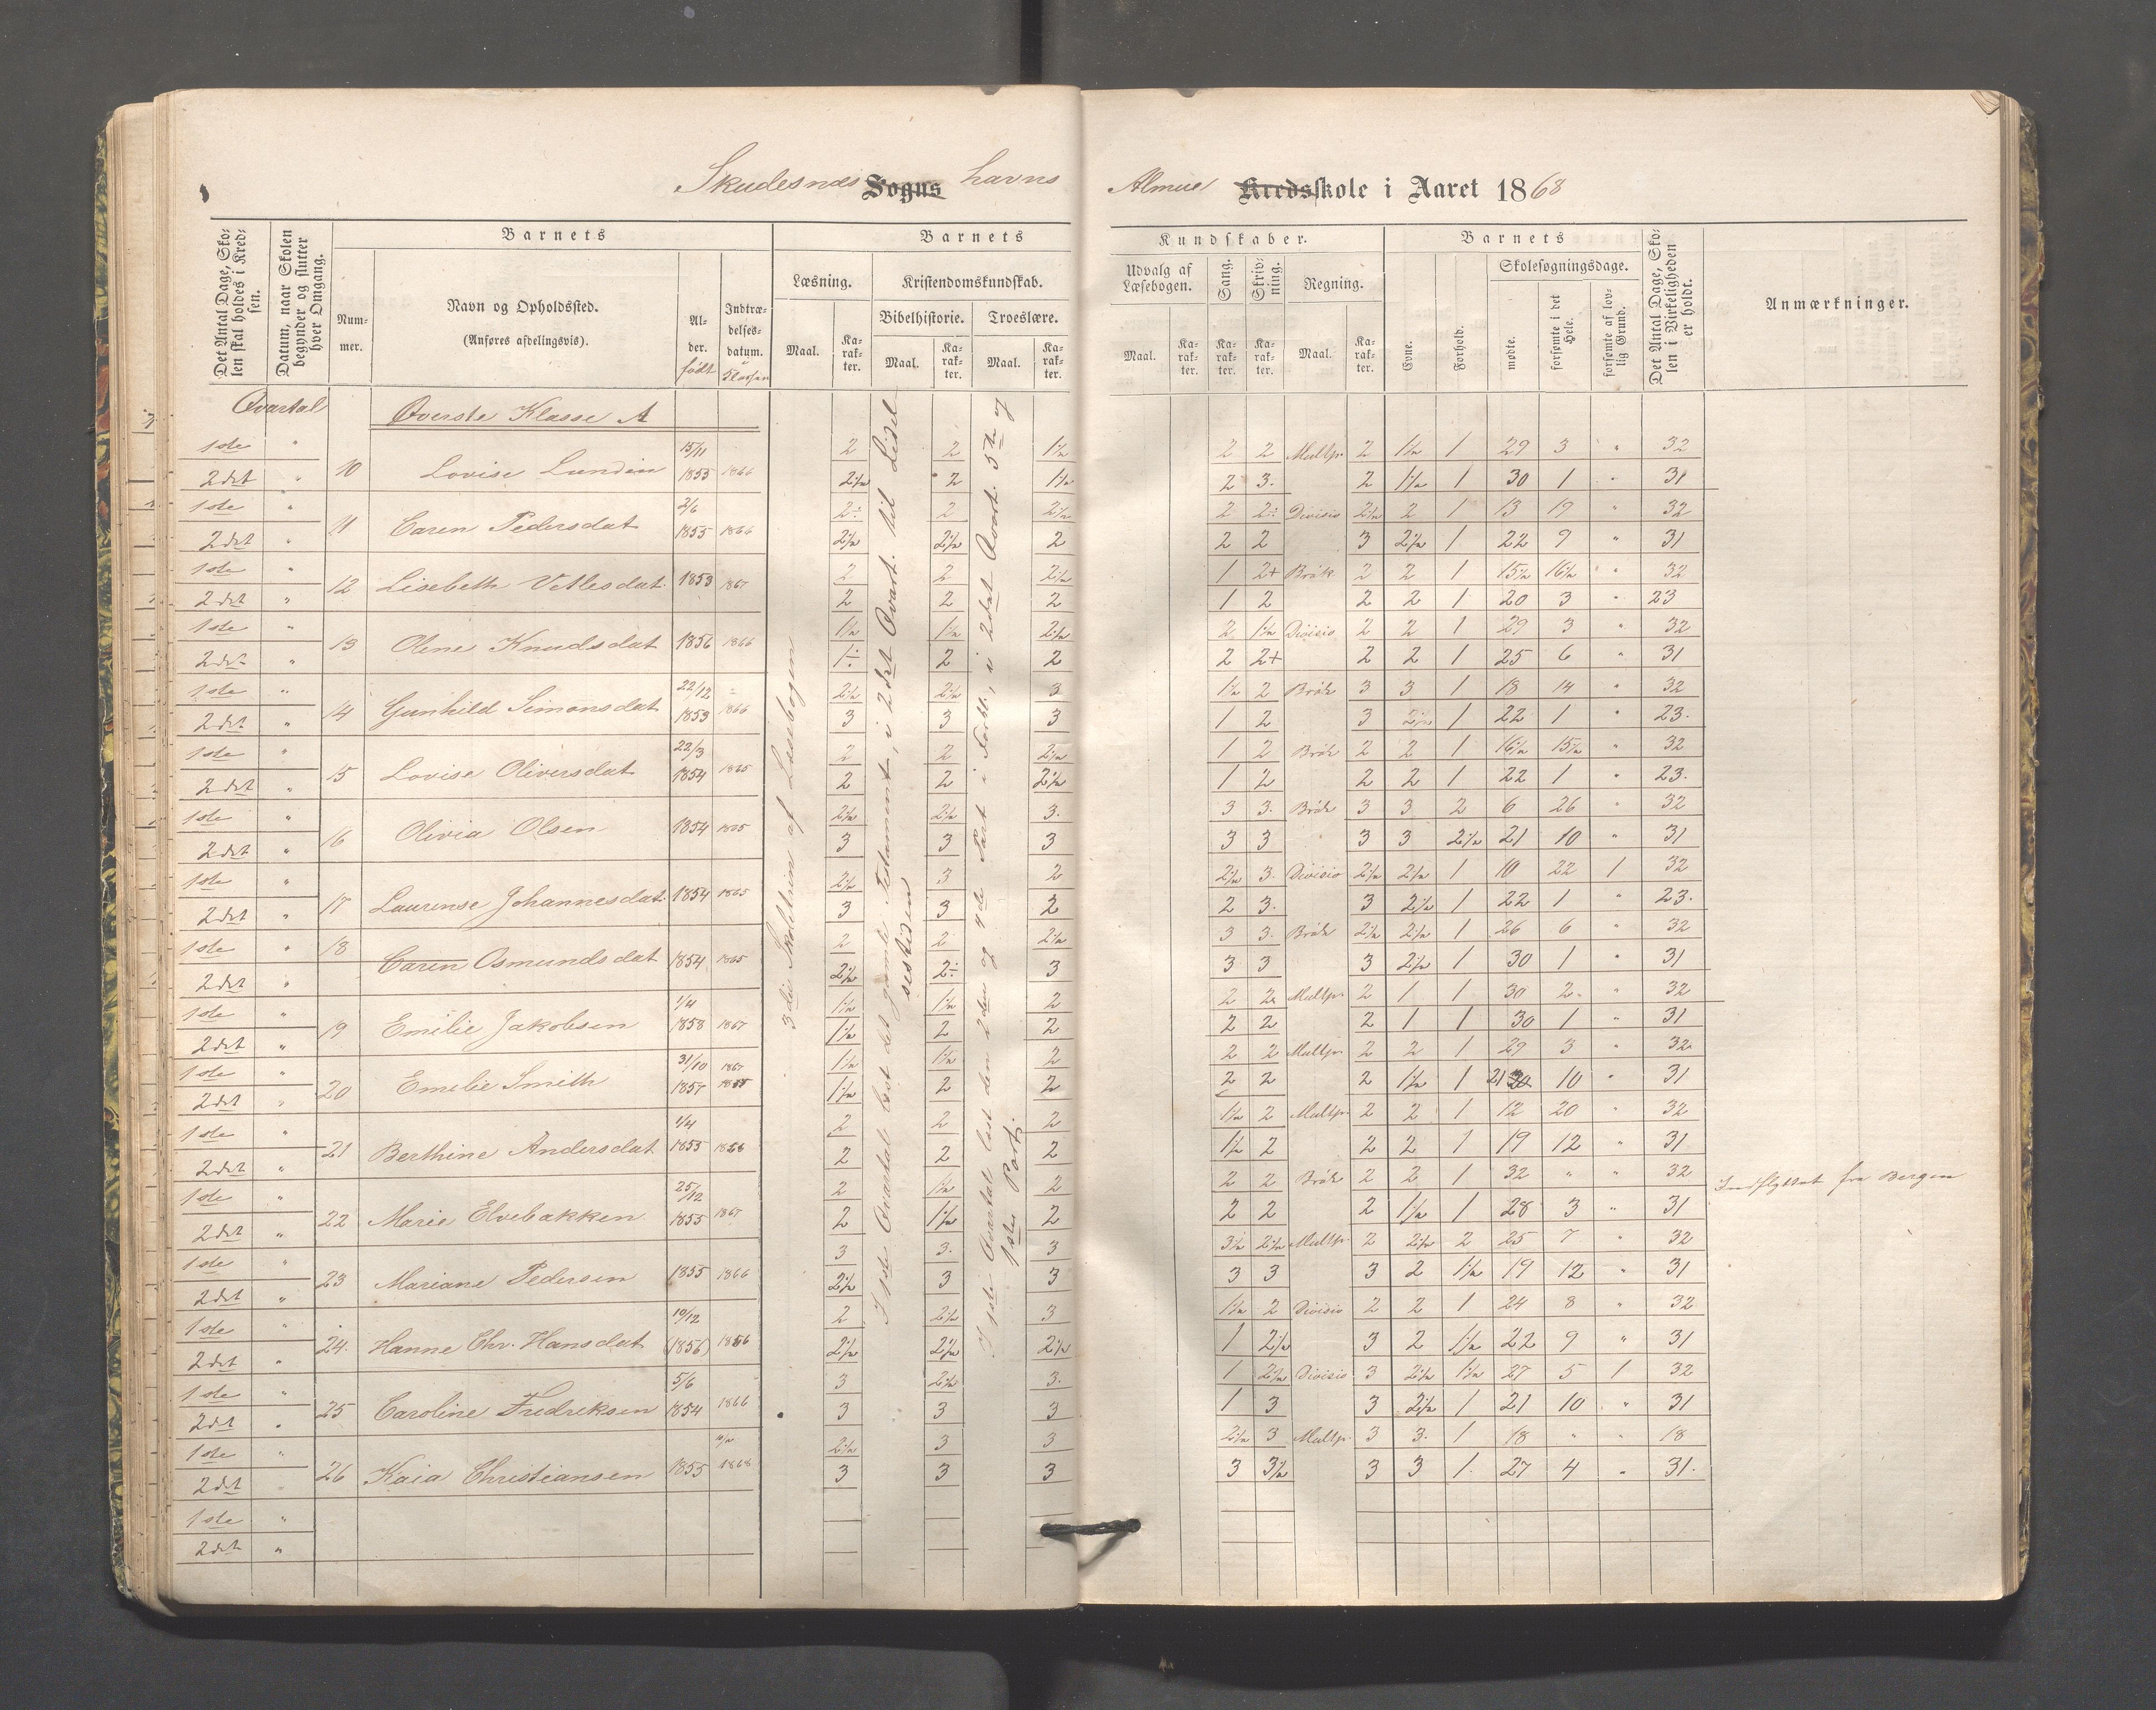 Skudesnæs Sogns havns Almue Kredsskole i Aaret 1868
Det Antal Dage, Skolen skal holdes i Kredsen.
Datum, naar Skolen begynder og slutter hver Omgang.
Barnets
Nummer.
Navn og Opholdssted.
(Anføres afdelingsvis).
Alder. født
Indtrædelsesdatum. i Klassen
Barnets Kundskaber.
Læsning.
Maal. Karakter.
Kristendomskundskab.
Bibelhistorie. Troeslære.
Maal. Karakter. Maal. Karakter.
Udvalg af Læsebogen.
Maal. Karakter.
Sang. Karakter.
Skrivning. Karakter.
Regning. Maal. Karakter.
Barnets
Evne. Forhold.
Skolesøgningsdage.
mødte. forsømte i det Hele. forsømte af lovlig Grund.
Det Antal Dage, Skolen i Virkeligheden er holdt.
Anmærkninger.
Qvartal Øverste Klasse A
3die Skoletrin af Læsebogen
1ste " 15/11 2 2 1½ 2 2 Multpr. 2 1½ 1 29 3 " 32
2det " 10 Lovise Lundin 1855 1866 2½ 2 1½ 2 3. 2 1½ 1 30 1 " 31
1ste " 2/6 2÷ 2 2½ 2 2÷ Divisio 2½ 2 1 13 19 " 32
2det " 11 Caren Pedersdat 1855 1866 2½ 2½ 2 2 2 3 2½ 1 22 9 " 31
1ste " 2 2 2½ 1 2+ Brøk 2 2 1 15½ 16½ " 32
2det " 12 Lisebeth Vetlesdat. 1853 1867 2 2 2 1 2 2 2 1 20 3 " 23
1ste " 1½ 1½ 2½ 2 1½ Divisio 2 2 1 29 3 " 32
2det " 13 Olene Knudsdat 1856 1866 1÷ 2 2 2 2+ 2 2 1 25 6 " 31
1ste " 22/12 2½ 2½ 3 1½ 2 Brøk 3 3 1 18 14 " 32
2det " 14 Gunhild Simonsdat 1853 1866 3 3 3 1 2 3 2½ 1 22 1 " 23.
1ste " 22/3 2 2 2½ 1 2 Brøk 2 2 1 16½ 15½ " 32
2det " 15 Lovise Oliversdat 1854 1865 2 2 2½ 1 2 2 2 1 22 1 " 23.
1ste " 2½ 2½ 3. 3 3. Brøk 3 3 2 6 26 " 32
2det " 16 Olivia Olsen 1854 1865 3 3 3 3 3 3 3 2½ 21 10 " 31
1ste " 2½ 3 2 2½ 3. Divisio 2½ 2½ 1 10 22 1 32
2det " 17 Laurense Johannesdat. 1854 1865 3 3 2 2 3. 3 2½ 1 22 1 " 23.
1ste " 18 2 2 2½ 3 3. Brøk 2½ 2½ 1 26 6 " 32
2det " Caren Osmundsdat 1854 1865 2½ 2÷ 3 3 3 3 2½ 1 30 1 " 31
1ste " 1/4 1½ 1½ 2 2 2 Multpr. 2 1 1 30 2 " 32
2det " 19 Emilie Jakobsen 1858 1867 1½ 2 2 2 2 2 1 1 30 1 " 31
1ste " 31/10 1867 1½ 1½ 2 2 2 Multpr. 2 2 1 29 3 " 32
2det " 20 Emilie Smith 1857 1½ 2 2 2 2 2 1½ 1 21 10 " 31
1ste " 1/4 2 2 2 1½ 2 Multpr. 2 2 1 12 20 " 32
2det " 21 Berthine Andersdat 1855 1866 2 2 2 1½ 2 2 2 1 19 12 " 31
1ste " 25/12 2 1½ 2 2 2 Brøk 2 2 1 32 " " 32 Indflyttet fra Bergen
2det " 22 Marie Elvebakken 1855 1867 2 1½ 2 2 2 2 1½ 1 28 3 " 31
1ste " 3 3. 3 3½ 2½ Multpr. 2 2½ 2 25 7 " 32
2det " 23 Mariane Pedersen 1855 1866 2½ 3 3 3 3 3 2 1½ 19 12 " 31
1ste " 10/12 2 2½ 3 1½ 2 Divisio 2 2 1 24 8 " 32
2det " 24. Hanne Chr. Hansdat (1856) 1866 2½ 2½ 2½ 1 2½ 3 2 1½ 22 9 " 31
1ste " 5/6 3 2½ 3. 1 2½ Divisio 3 2½ 1½ 27 5 1 32
2det " 25 Caroline Fredreksen 1854 1866 3 3 3 1 3 3 2½ 1 21 10 " 31
1ste " 2½ 3 3 2½ 3 Multpr. 3 3. 1 18 " " 18
2det 26 Kaia Christiansen 1855 1868 3 3 3 3 3½ 3 3 1. 27 4 " 31.
1ste "
2det "
I 1ste Qvartal læst det gamle Testamente, i 2det Qvart. til Lidelsestiden
I 1ste Qvartal læst den 2den og 4de Part i Forkl., i 2det Qvart. 5te og 1ste Part